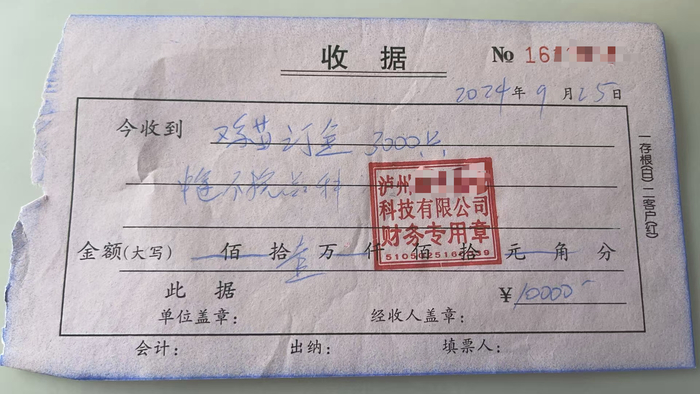 收据 No 161
2024年9月25日
今收到 鸡苗订金 3000只
中途不脱苗料
泸州
科技有限公司
财务专用章
金额(大写) 佰 拾 壹 万 仟 佰 拾 元 角 分
此据
¥10000
单位盖章: 经收人盖章:
会计: 出纳: 填票人:
一存根(白) 二客户(红)